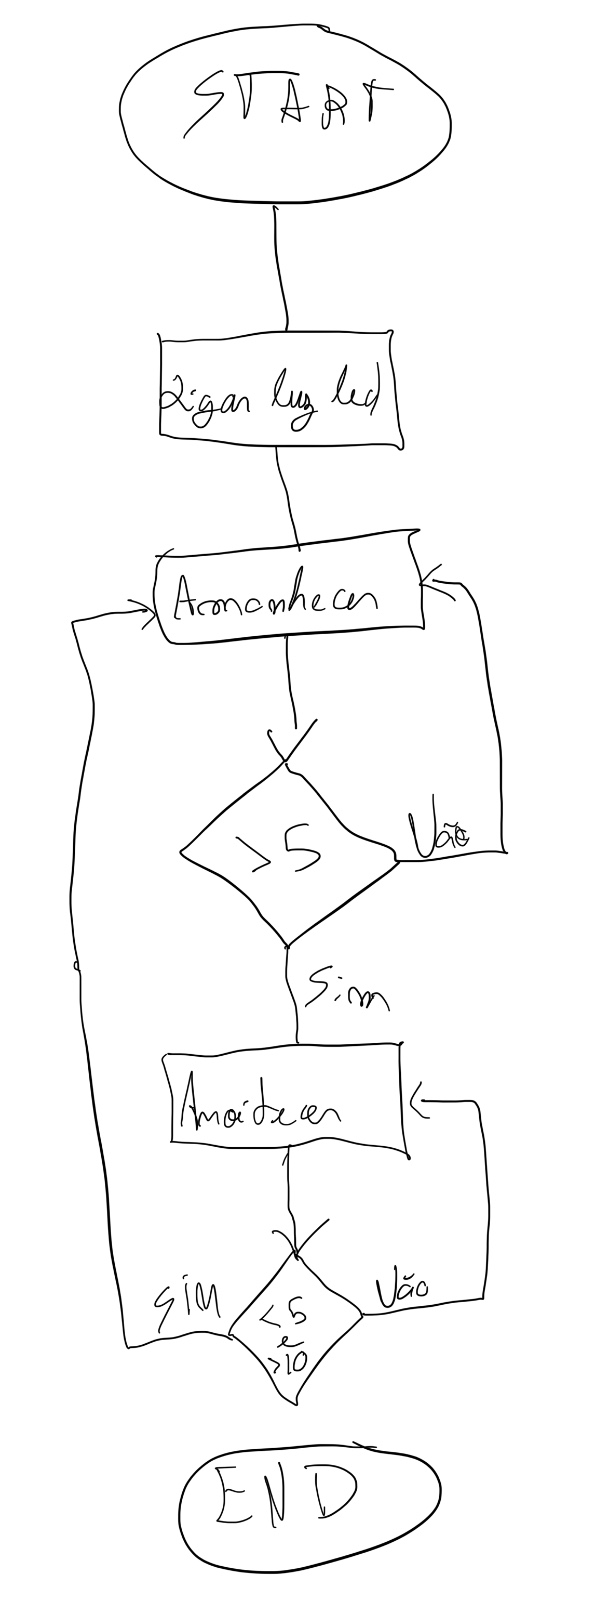 START
Ligar luz led
Amanhecer
>5
Não
Sim
Anoitecer
SIM
<5
e
>10
Não
END